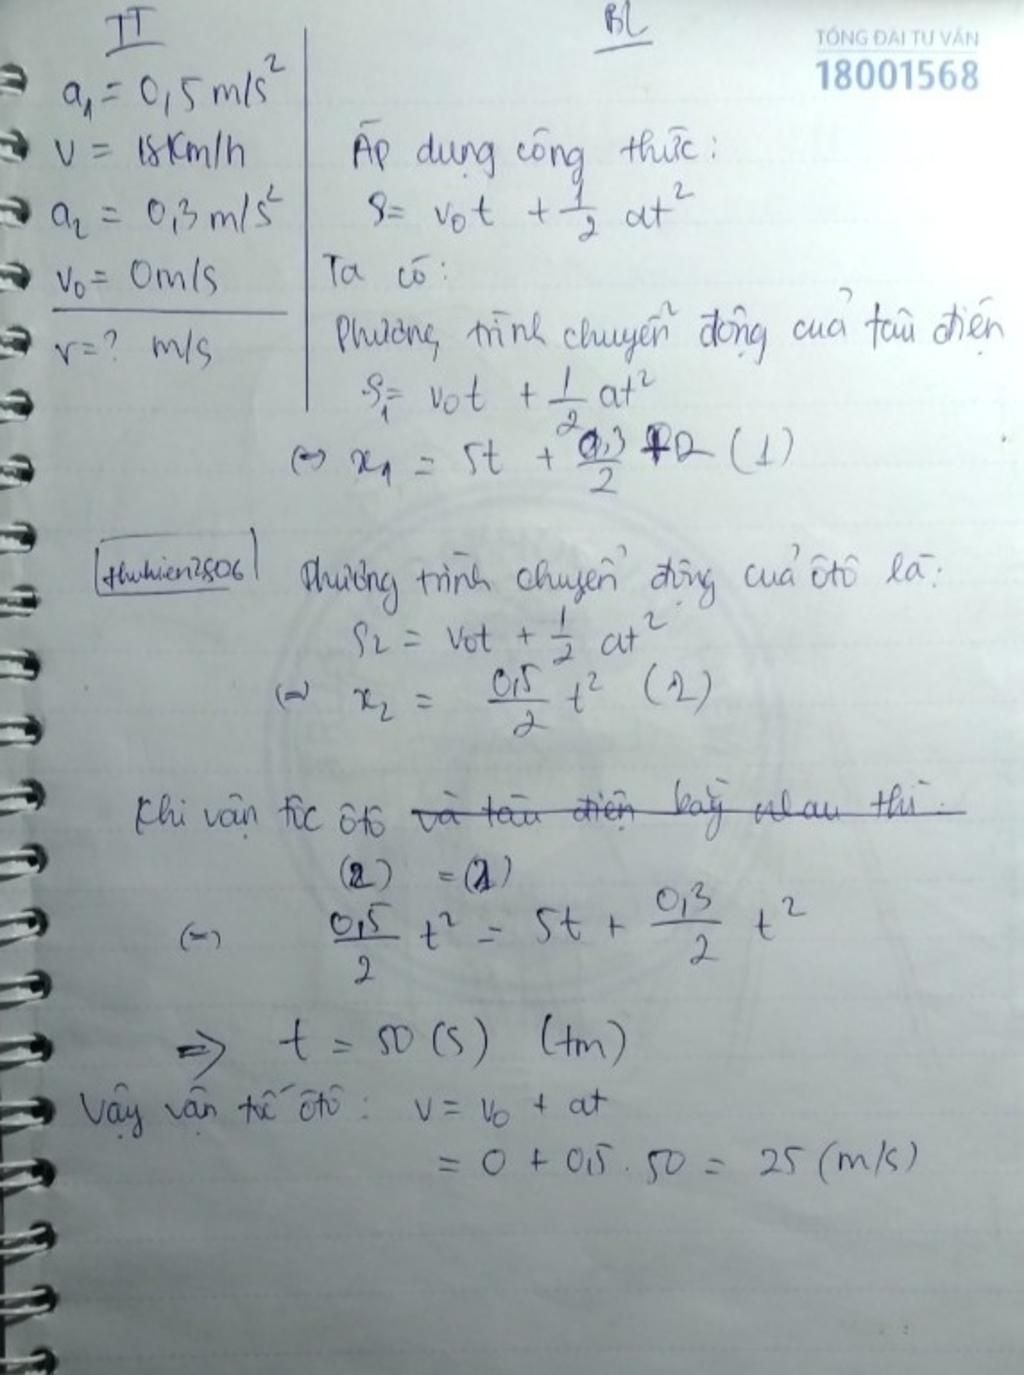 TT
BL
TỔNG ĐÀI TƯ VẤN
18001568
a₁ = 0,5 m/s²
v = 18Km/h
a₂ = 0,3 m/s²
v₀ = 0m/s
v = ? m/s
Áp dụng công thức:
S = v₀t + 1/2 at²
Ta có:
Phương trình chuyển động của tàu điện
S₁ = v₀t + 1/2 at²
(=) x₁ = 5t + 0,3/2 t2 (1)
thuhien2506
Phương trình chuyển động của ôtô là:
S₂ = v₀t + 1/2 at²
(=) x₂ = 0,5/2 t² (2)
Khi vận tốc ôtô và tàu điện bằng nhau thì
(2) = (1)
(=) 0,5/2 t² = 5t + 0,3/2 t²
=> t = 50 (s) (tm)
Vậy vận tốc ôtô: v = v₀ + at
= 0 + 0,5 . 50 = 25 (m/s)